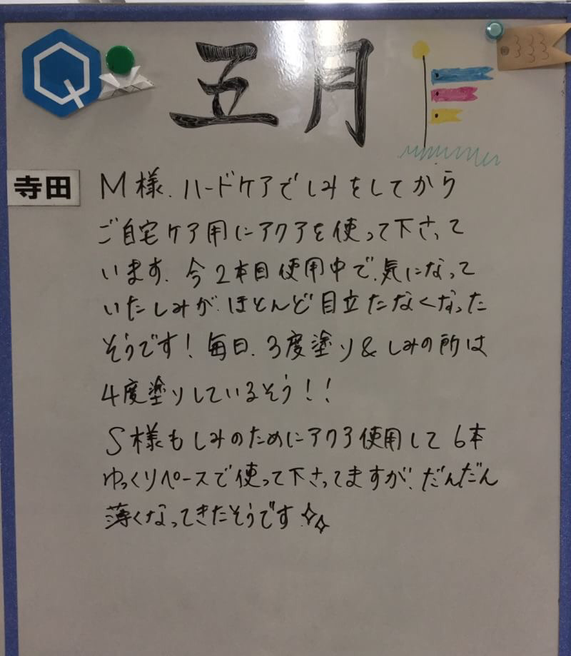 五月
寺田
M様、ハードケアでしみをしてから
ご自宅ケア用にアクアを使って下さって
います。今2本目使用中で、気になって
いたしみが、ほとんど目立たなくなった
そうです！毎日、3度塗り&しみの所は
4度塗りしているそう！！
S様もしみのためにアクア使用して6本
ゆっくりペースで使って下さってますが、だんだん
薄くなってきたそうです